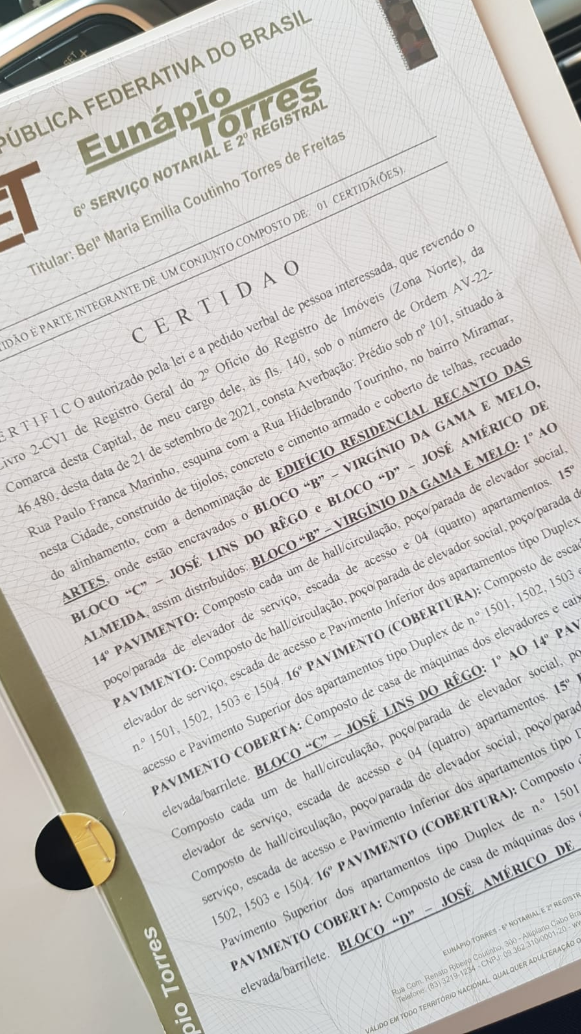 PÚBLICA FEDERATIVA DO BRASIL
ET
Eunápio
Torres
6º SERVIÇO NOTARIAL E 2º REGISTRAL
Titular: Belª Maria Emilia Coutinho Torres de Freitas
TIDÃO É PARTE INTEGRANTE DE UM CONJUNTO COMPOSTO DE: 01 CERTIDÃ(ÕES).
C E R T I D Ã O
E R T I F I C O autorizado pela lei e a pedido verbal de pessoa interessada, que revendo o
Livro 2-CVI de Registro Geral do 2º Ofício do Registro de Imóveis (Zona Norte), da
Comarca desta Capital, de meu cargo dele, às fls. 140, sob o número de Ordem AV-22-
46.480, desta data de 21 de setembro de 2021, consta Averbação: Prédio sob nº 101, situado à
Rua Paulo Franca Marinho, esquina com a Rua Hidelbrando Tourinho, no bairro Miramar,
nesta Cidade, construído de tijolos, concreto e cimento armado e coberto de telhas, recuado
do alinhamento, com a denominação de EDIFÍCIO RESIDENCIAL RECANTO DAS
ARTES, onde estão encravados o BLOCO "B" – VIRGÍNIO DA GAMA E MELO,
BLOCO "C" – JOSÉ LINS DO RÊGO e BLOCO "D" – JOSÉ AMÉRICO DE
ALMEIDA, assim distribuídos: BLOCO "B" – VIRGÍNIO DA GAMA E MELO: 1º AO
14º PAVIMENTO: Composto cada um de hall/circulação, poço/parada de elevador social,
poço/parada de elevador de serviço, escada de acesso e 04 (quatro) apartamentos. 15º
PAVIMENTO: Composto de hall/circulação, poço/parada de elevador social, poço/parada de
elevador de serviço, escada de acesso e Pavimento Inferior dos apartamentos tipo Duplex
n.º 1501, 1502, 1503 e 1504. 16º PAVIMENTO (COBERTURA): Composto de escada
acesso e Pavimento Superior dos apartamentos tipo Duplex de n.º 1501, 1502, 1503 e
PAVIMENTO COBERTA: Composto de casa de máquinas dos elevadores e caixa
elevada/barrilete. BLOCO "C" – JOSÉ LINS DO RÊGO: 1º AO 14º PAV
Composto cada um de hall/circulação, poço/parada de elevador social,
elevador de serviço, escada de acesso e 04 (quatro) apartamentos. 15º
Composto de hall/circulação, poço/parada de elevador social, poço/parada
serviço, escada de acesso e Pavimento Inferior dos apartamentos tipo
1502, 1503 e 1504. 16º PAVIMENTO (COBERTURA): Composto
Pavimento Superior dos apartamentos tipo Duplex de n.º 1501
PAVIMENTO COBERTA: Composto de casa de máquinas dos
elevada/barrilete. BLOCO "D" – JOSÉ AMÉRICO DE
EUNÁPIO TORRES - 6º NOTARIAL E 2º REGISTR
Rua Com. Renato Ribeiro Coutinho, 500 - Altiplano Cabo
Telefone: (83) 3219-1234 - CNPJ: 09.362.310/0001-20 -
VÁLIDO EM TODO TERRITÓRIO NACIONAL, QUALQUER ADULTERAÇÃO
pio Torres